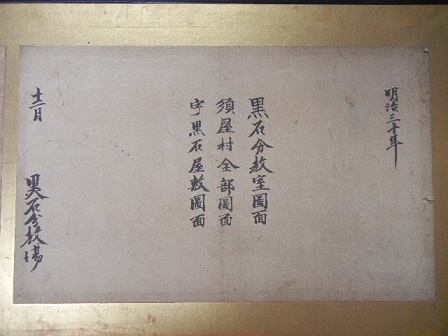 明治三十年
黒石分教室圖面
須屋村全部圖面
字黒石屋敷圖面
十二月
黒石分教場